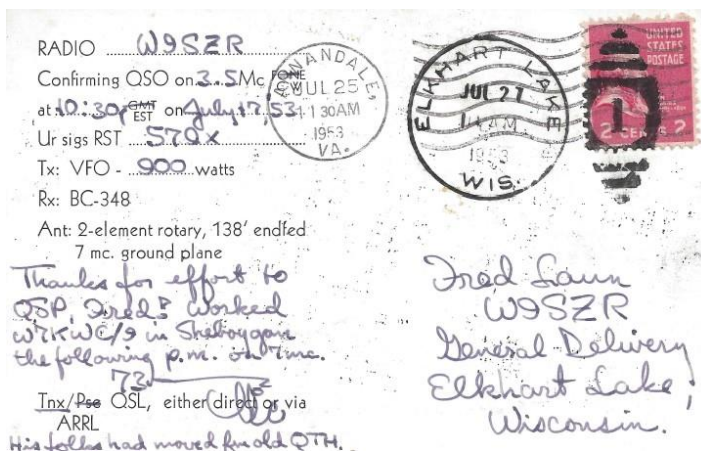 RADIO W9SZR
Confirming QSO on 3.5Mc FONE
at 10:30p GMT EST on July 17, 53
Ur sigs RST 579x
Tx: VFO - 900 watts
Rx: BC-348
Ant: 2-element rotary, 138' endfed
7 mc. ground plane
Thanks for effort to
QSP, Fred! Worked
W7KWC/9 in Sheboygan
the following p.m. on 7mc.
73
Tnx/Pse QSL, either direct or via
ARRL
His folks had moved fm old QTH.
ANNANDALE,
JUL 25
11 30AM
1953
VA.
ELKHART LAKE
JUL 27
AM
1953
WIS.
UNITED
STATES
POSTAGE
1
2 CENTS 2
Fred Laun
W9SZR
General Delivery
Elkhart Lake,
Wisconsin.